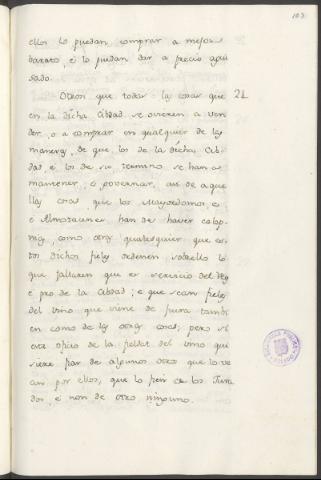 103
ellos lo puedan comprar a mejor
barato, e lo puedan dar a precio agui
sado.
Otrosi que todas las cosas que 21
en la dicha Cibdad se ovieren a ven
der, o a comprar en qualquier de las
maneras, de que los de la dicha Cib
dad, e los de su termino se han a
mantener, e governar, asi de aque
llas cosas que los Mayordomos, e
e Almotacenes han de haver calop
nias, como otras qualesquier que es
tos dichos fieles ordenen sobrello lo
que fallaren que es servicio del Rey
e pro de la Cibdad; e que sean fieles
del vino que viene de fuera tambi
en como de las otras cosas, pero si
este oficio de la fieldat del vino qui
siere par de algunos otro que lo ve
an por ellos, que lo pein de los Jura
dos, e non de otro ninguno.